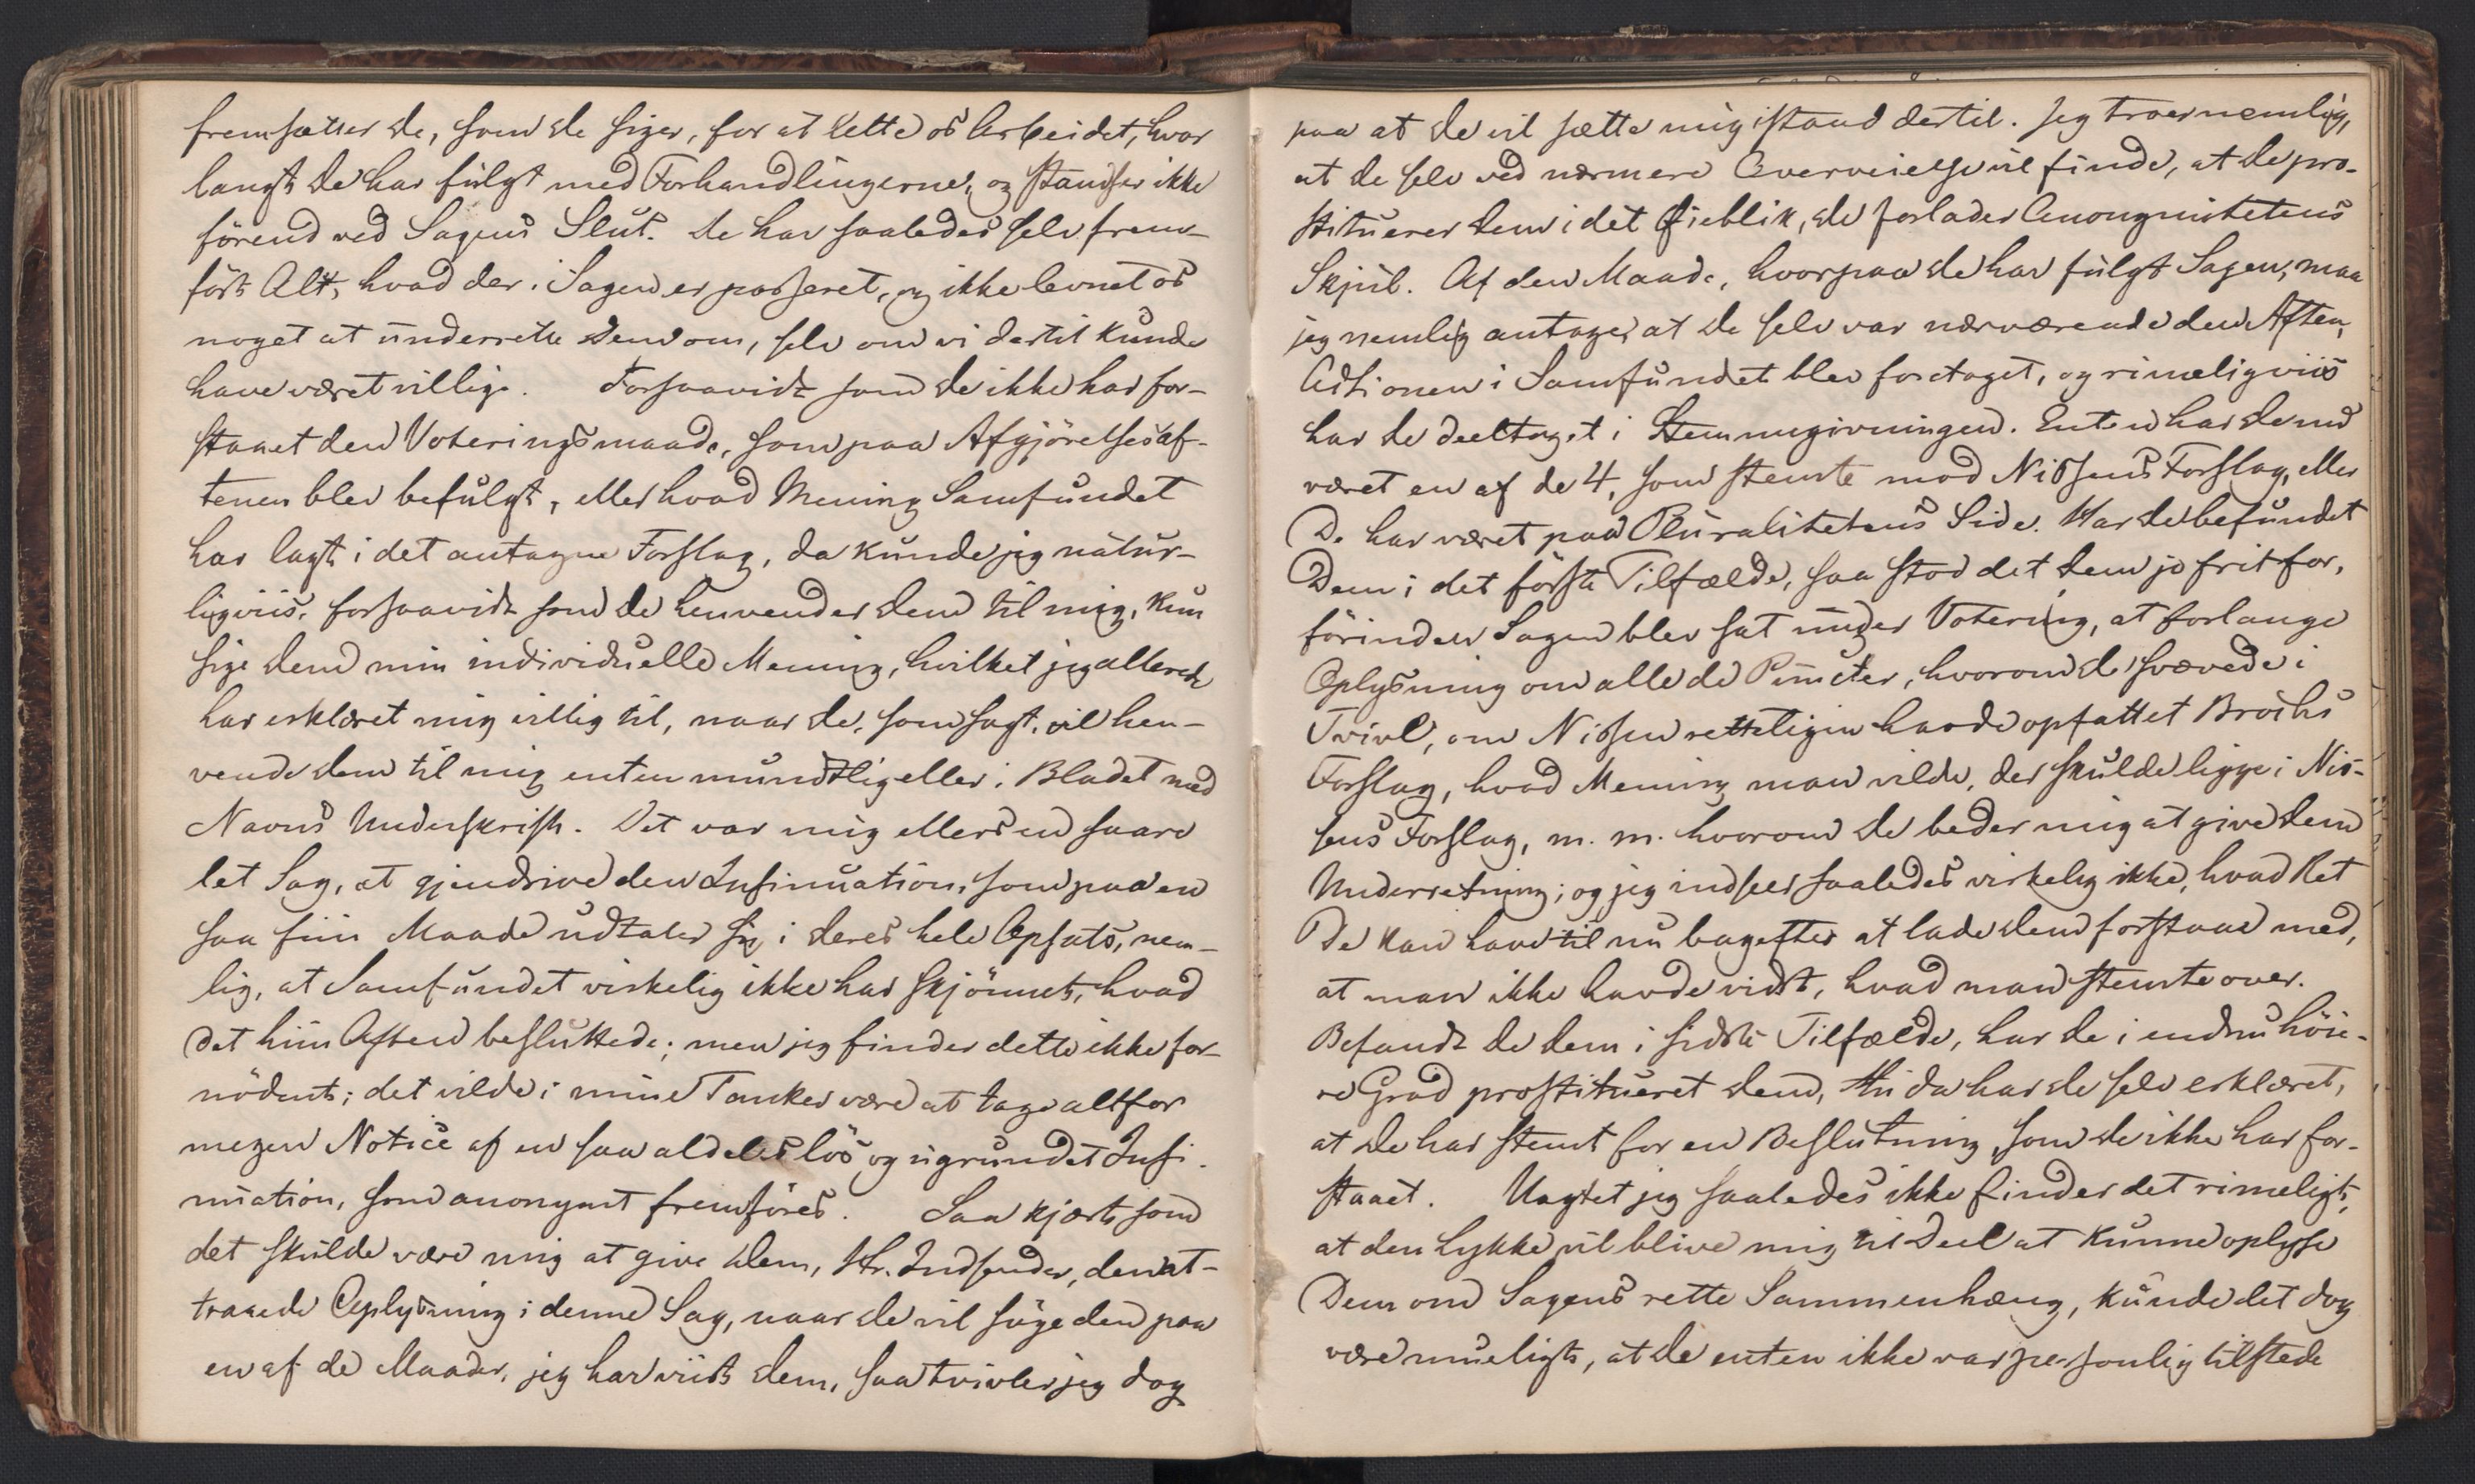 fremsætter De, som De siger, for at lette os Arbeidet, hvor
langt De har fulgt med Forhandlingerne, og standser ikke
förend ved Sagens Slut. De har saaledes selv frem-
fört Alt, hvad der i Sagen er passeret, og ikke levnet os
noget at underrette Dem om, selv om vi dertil kunde
have været villige. Forsaavidt som De ikke har for-
staaet den Voteringsmaade, som paa Afgjörelsesaf-
tenen blev befulgt, eller hvad Mening Samfundet
har lagt i det antagne Forslag, da kunde jeg natur-
ligviis, forsaavidt som De henvender Dem til mig, kun
sige Dem min individuelle Mening, hvilket jeg allerede
har erklæret mig villig til, naar De, som sagt, vil hen-
vende Dem til mig enten mundtlig eller i Bladet med
Navns Underskrift. Det var mig ellers en saare
let Sag, at gjendrive den Insinuation, som paa en
saa fiin Maade udtaler sig i Deres hele Opsats, nem-
lig, at Samfundet virkelig ikke har skjönnet, hvad
det hiin Aften besluttede; men jeg finder dette ikke for-
nödent; det vilde i mine Tanker være at tage altfor
megen Notice af en saa aldeles lös og ugrundet Insi-
nuation, som anonymt fremföres. Saa kjært som
det skulde være mig at give Dem, Hr. Indsender, den at-
traaede Oplysning i denne Sag, naar De vil söge den paa
en af de Maader, jeg har viist Dem, saa tvivler jeg dog
paa at De vil sætte mig istand dertil. Jeg troer nemlig,
at De selv ved nærmere Overveielse vil finde, at De pro-
stituerer Dem i det Øieblik, De forlader Anonymitetens
Skjul. Af den Maade, hvorpaa De har fulgt Sagen, maa
jeg nemlig antage, at De selv var nærværende den Aften,
Actionen i Samfundet blev foretaget, og rimeligviis
har De deeltaget i Stemmegivningen. Enten har De nu
været en af de 4, som stemte mod Nissens Forslag, eller
De har været paa Pluralitetens Side. Har De befundet
Dem i det förste Tilfælde, saa stod det Dem jo frit for,
förinden Sagen blev sat under Votering, at forlange
Oplysning om alle de Puncter, hvorom De svævede i
Tvivl, om Nissen retteligen havde opfattet Brochs
Forslag, hvad Mening man vilde, der skulde ligge i Nis-
sens Forslag, m. m. hvorom De beder mig at give Dem
Underretning; og jeg indseer saaledes virkelig ikke, hvad Ret
De kan have til nu bagefter at lade Dem forstaae med,
at man ikke havde vidst, hvad man stemte over.
Befandt De Dem i sidste Tilfælde, har De i endnu höie-
re Grad prostitueret Dem, thi da har De selv erklæret,
at De har stemt for en Beslutning, som De ikke har for-
staaet. Uagtet jeg saaledes ikke finder det rimeligt,
at den Lykke vil blive mig til Deel at kunne oplyse
Dem om Sagens rette Sammenhæng, kunde det dog
være mueligt, at De enten ikke var personlig tilstede